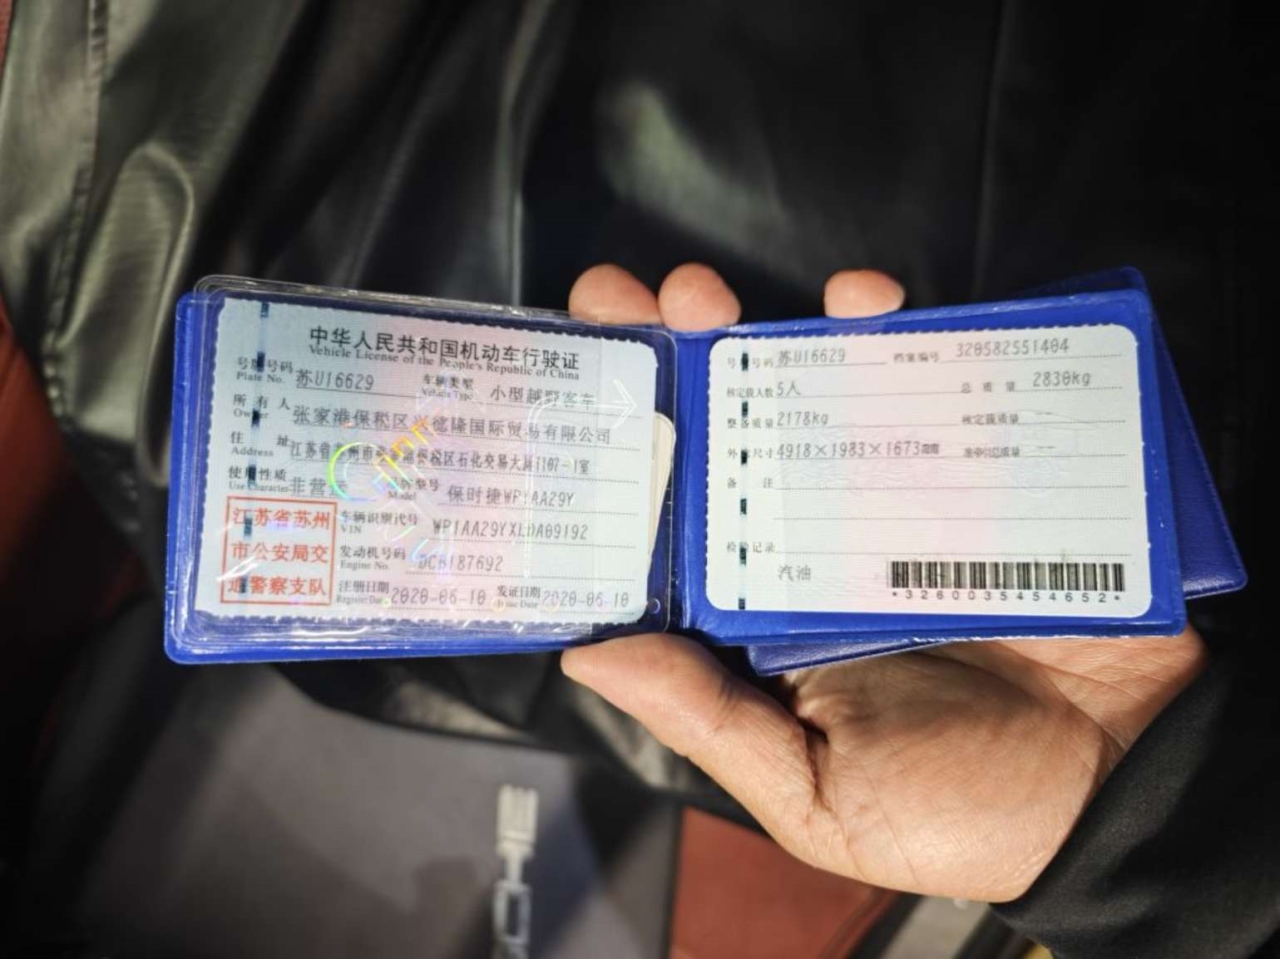 中华人民共和国机动车行驶证
Vehicle License of the People's Republic of China
号牌号码 苏U16629 车辆类型 小型越野客车
Plate No. Vehicle Type
所有人 张家港保税区 德隆国际贸易有限公司
Owner
住址 江苏省 州市 保税区石化交易大厦1107-1室
Address
使用性质 非营运 品牌型号 保时捷WP1AA29Y
Use Character Model
江苏省苏州
市公安局交
通警察支队
车辆识别代号 WP1AA29YXLDA09192
VIN
发动机号码 DCB187692
Engine No.
注册日期 2020-06-10 发证日期 2020-06-10
Register Date Issue Date
号牌号码 苏U16629 档案编号 320582551404
核定载人数 5人 总质量 2830kg
整备质量 2178kg 核定载质量 --
外廓尺寸 4918×1983×1673mm 准牵引总质量 --
备注
检验记录
汽油
*3260035454652*